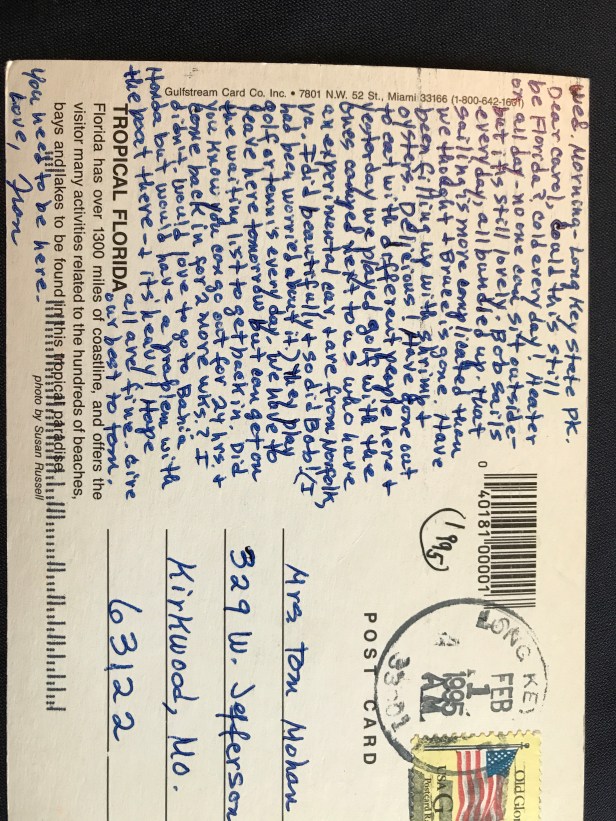 Wed. Morning - Long Key State Pk.
Dear Carol, Could this still
be Florida? Cold every day! Heater
on all day no one can sit outside -
but it's still lovely. Bob sails
every day, all bundled up, that
sailing's more complicated than
we thought & Bruce is gone. Have
been filling up with shrimp &
oysters. Delicious! Have gone out
to eat with different people here &
yesterday we played golf with the
ones camped next to us who have
an experimental car & are from Norfolk,
Va. I did beautifully & so did Bob! (I
had been worried about it) They play
golf or tennis every day. We have to
leave here tomorrow but can get on
the waiting list to get back in. Did
you know you can go out for 24 hrs. &
come back in for 2 more wks.? I
didn't. Would love to go to Bahia
Honda but would have a problem with
the boat there - & it's heavy! Hope
all are fine. Give
our best to Tom.
You need to be here -
Love, Fran
Gulfstream Card Co. Inc. • 7801 N.W. 52 St., Miami 33166 (1-800-642-1691)
TROPICAL FLORIDA
Florida has over 1300 miles of coastline, and offers the
visitor many activities related to the hundreds of beaches,
bays and lakes to be found in this tropical paradise.
photo by Susan Russell
0 40181 00001
(1995)
POST CARD
LONG KEY
FEB
1
1995
AM
Old Glory
USA G
Postcard
Mrs Tom Mohan
329 W. Jefferson
Kirkwood, Mo.
63122